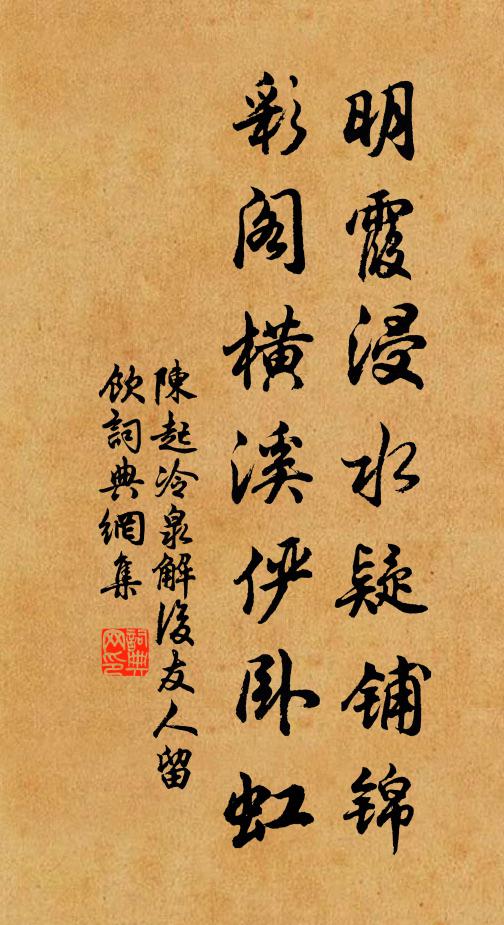 明霞浸水疑铺锦
彩阁横溪俨卧虹
陳起冷泉解後友人留
飲詞典網集
詞典网印